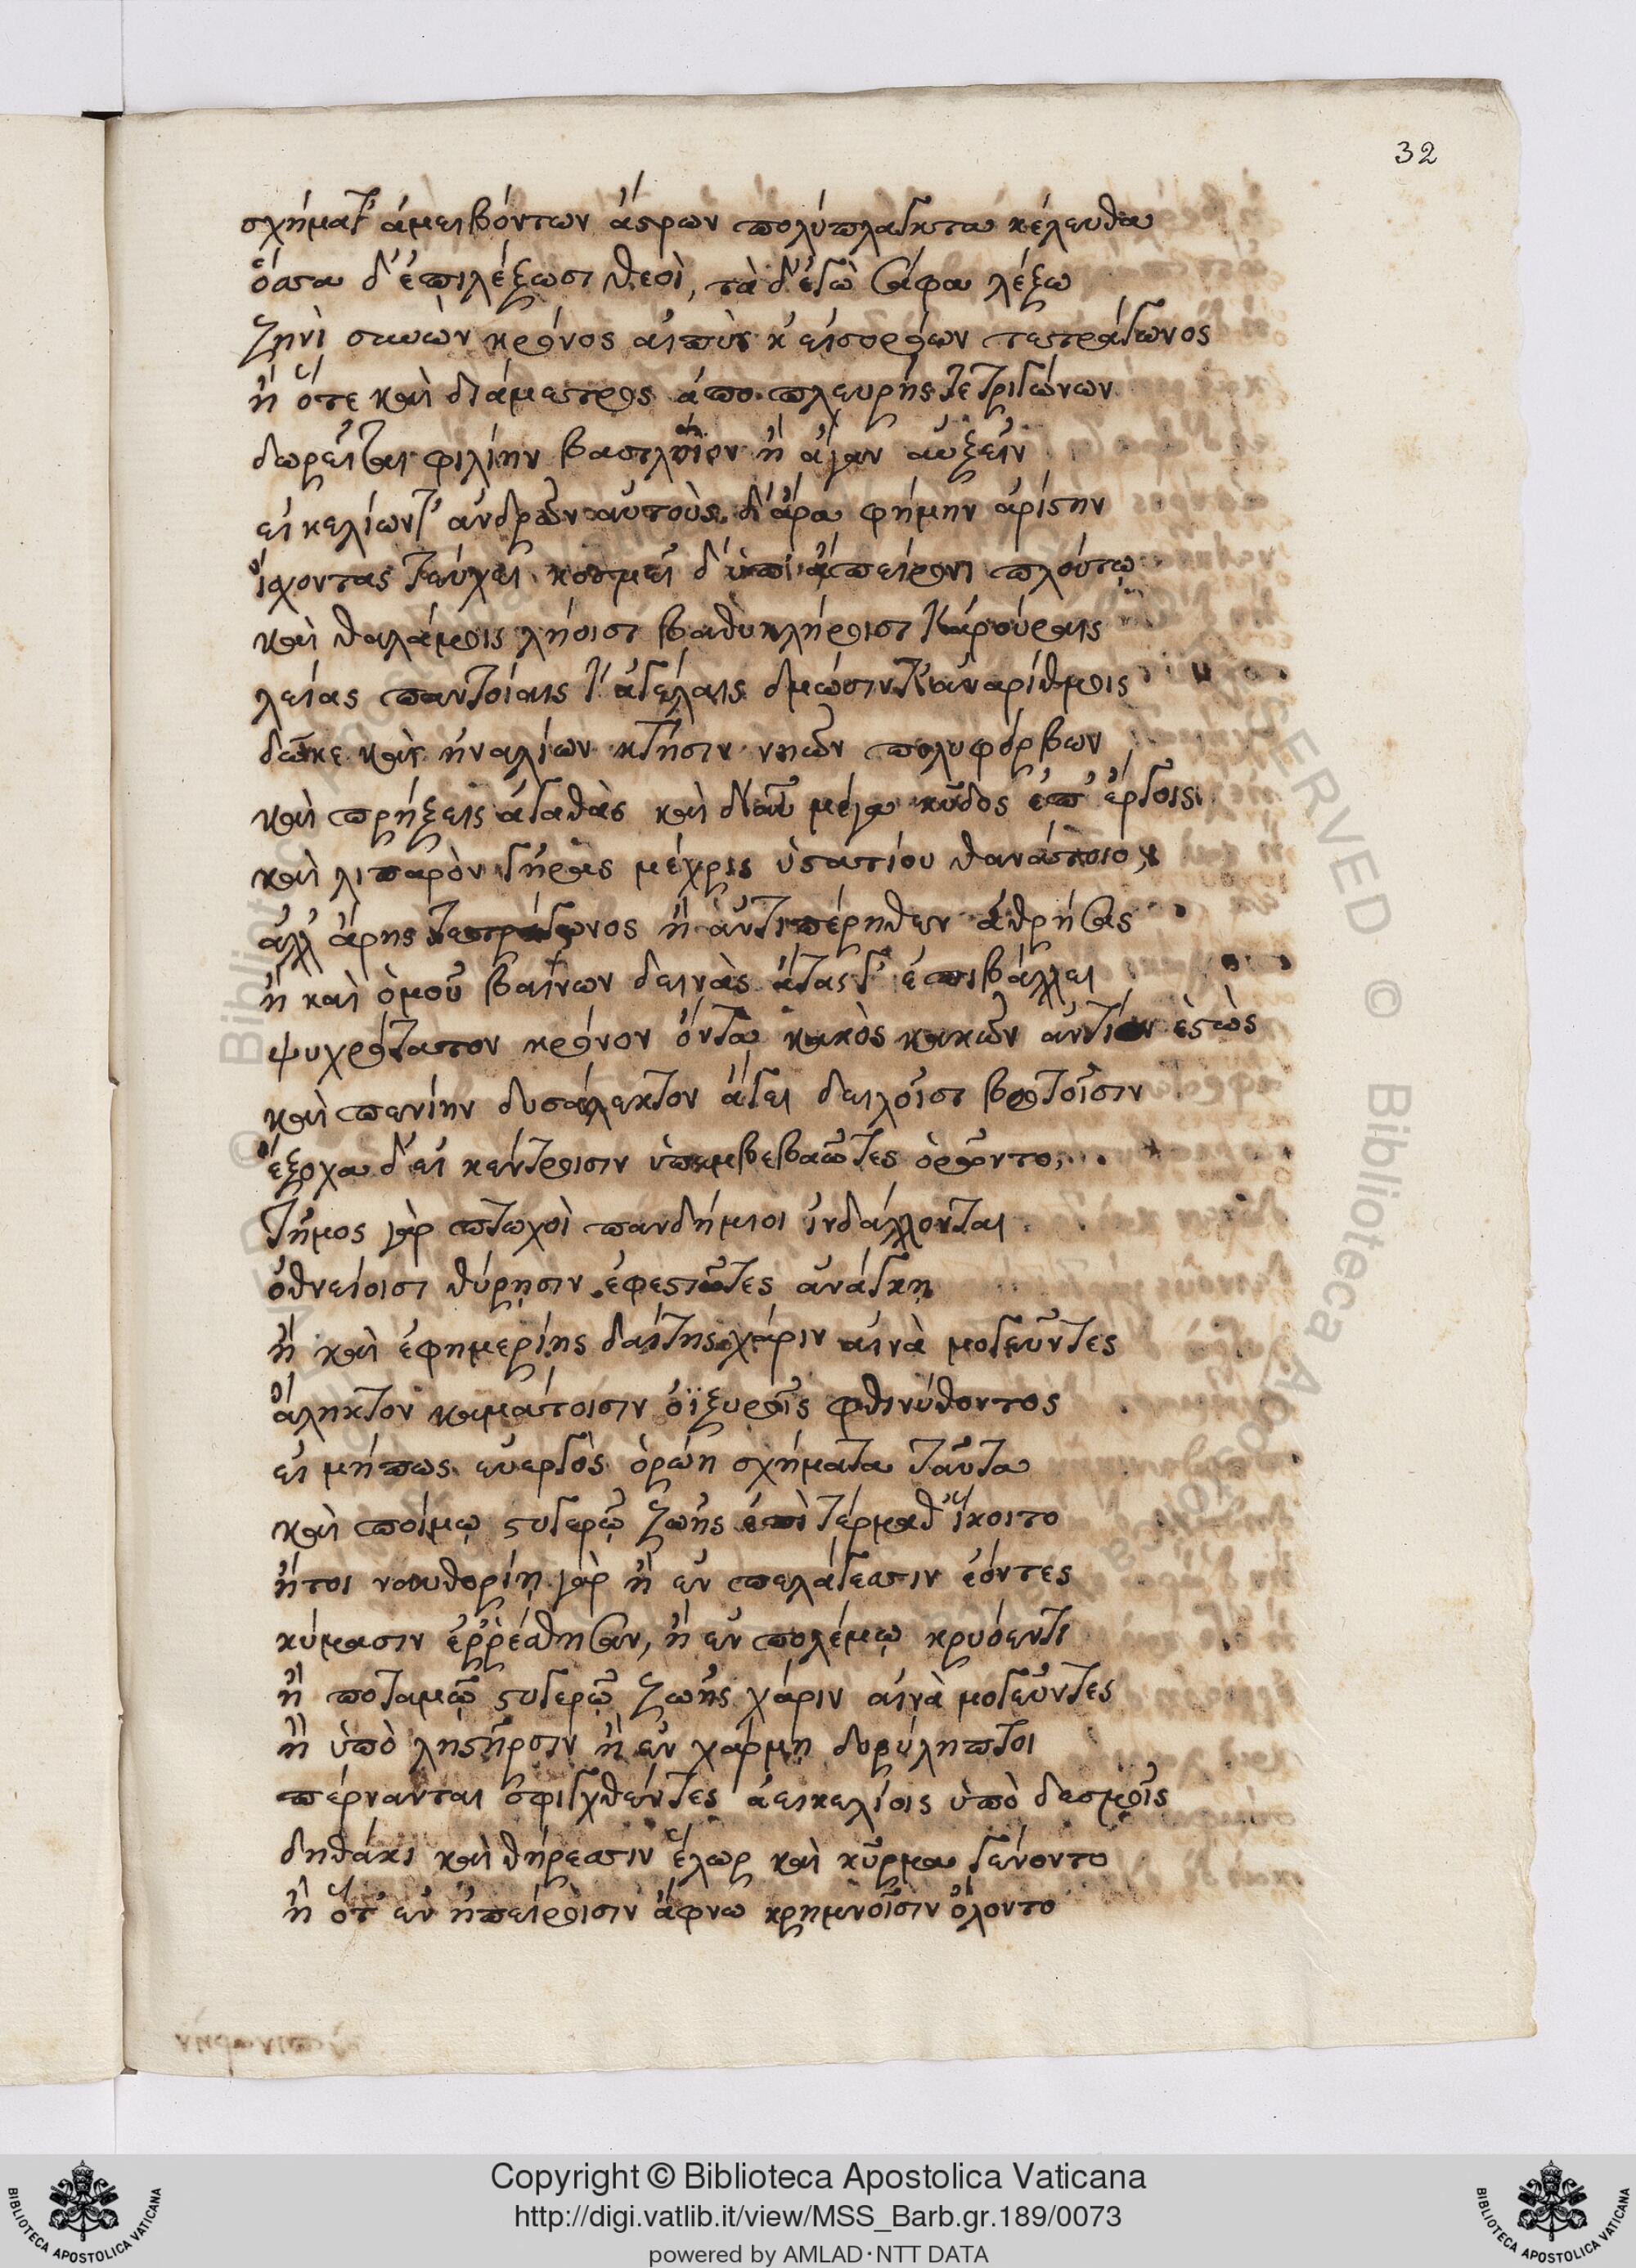 32
σχήματ' ἀμειβόντων ἄστρων πολύπλαγκτα κέλευθα
ὅσσα δ' ἐπιλέξωσι θεοὶ, τὰ δ' ἐγὼ σάφα λέξω
ζηνὶ συνὼν κρόνος αἰπὺς κ' εἰσορόων τετράγωνος
ἢ ὅτε καὶ διάμετρος ἀπο πλευρῆς τε τριγώνων
δωρεῖται φιλίην βασιληίον ἢ ἄγαν αὔξειν
εἰκελίων τ' ἀνδρῶν αὐτοὺς δ' ἄρα φήμην ἀρίστην
ἴσχοντας τεύχει κοσμεῖ δ' ἀπείρονι πλούτῳ
καὶ θαλάμοις ληόισι βαθυκλήροισι τ' ἀρούραις
λείας παντοίαις τ' ἀγέλαις δμώσιν τ' ἀναρίθμοις
δῶκε καὶ ἠναλίων κτῆσιν νηῶν πολυφόρβων
καὶ πρήξεις ἀγαθὰς καὶ μέγα κῦδος ἐπ' ἔργοις
καὶ λιπαρὸν γῆρας μέχρις ὑστατίου θανάτοιο
ἀλλ' ἄρης τετράγωνος ἢ ἀντιπέρηθεν ἀθρήσας
ἢ καὶ ὁμοῦ βαίνων δεινὰς ἄτας γ' ἐπιβάλλει
ψυχρότατον κρόνον ὄντα κακὸς κακῶν ἀντίον ἑστὼς
καὶ πενίην δυσάλεκτον ἄγει δειλοῖσι βροτοῖσιν
ἔξοχα δ' εἰ κέντροισιν ὑπεμβεβαῶτες ὁρῶντο,
τῆμος γὰρ πτωχοὶ πανδήμιοι ἰνδάλλονται
ὀθνείοισι θύρῃσιν ἐφεστῶτες ἀνάγκῃ
ἢ καὶ ἐφημερίης δαίτης χάριν αἰνὰ μογεῦντες
ἄληκτον καμάτοισιν ὀϊξυροῖς φθινύθοντος
εἰ μήπως εὐεργὸς ὁρώη σχήματα ταῦτα
καὶ πότμῳ στυγερῷ ζωῆς ἐπὶ τέρμαθ' ἵκοιτο
ἤτοι ναυθορίῃ γὰρ ἢ ἐν πελάγεσσιν ἐόντες
κύμασιν ἐῤῥέαθησαν, ἢ ἐν πολέμῳ κρυόεντι
ἢ ποταμῷ στυγερῷ ζωῆς χάριν αἰνὰ μογεῦντες
ἢ ὑπὸ ληστῆρσιν ἢ ἐν χάρμῃ δορύληπτοι
πέρνανται σφιγχθέντες ἀεικελίοις ὑπὸ δεσμοῖς
δηθάκι καὶ θήρεσσιν ἕλωρ καὶ κῦρμα γένοντο
ἢ ὅτ' ἐν ἠπείροισιν ἄφνω κρημνοῖσιν ὄλοντο
Copyright © Biblioteca Apostolica Vaticana
http://digi.vatlib.it/view/MSS_Barb.gr.189/0073
powered by AMLAD·NTT DATA
BIBLIOTECA APOSTOLICA VATICANA
BIBLIOTECA APOSTOLICA VATICANA